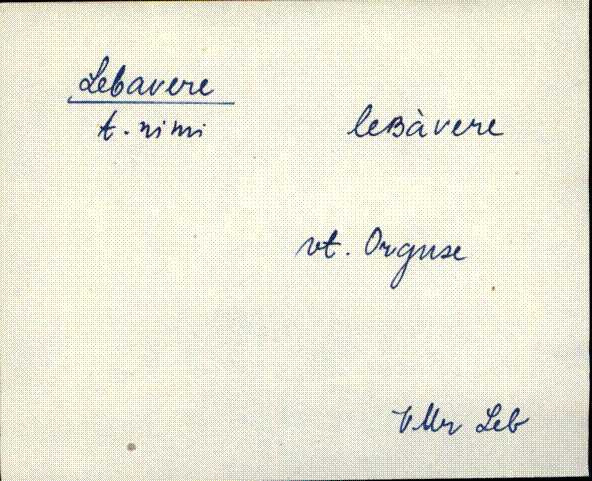 Lebavere
t. nimi
leBàvere
vt. Orguse
VMr Leb